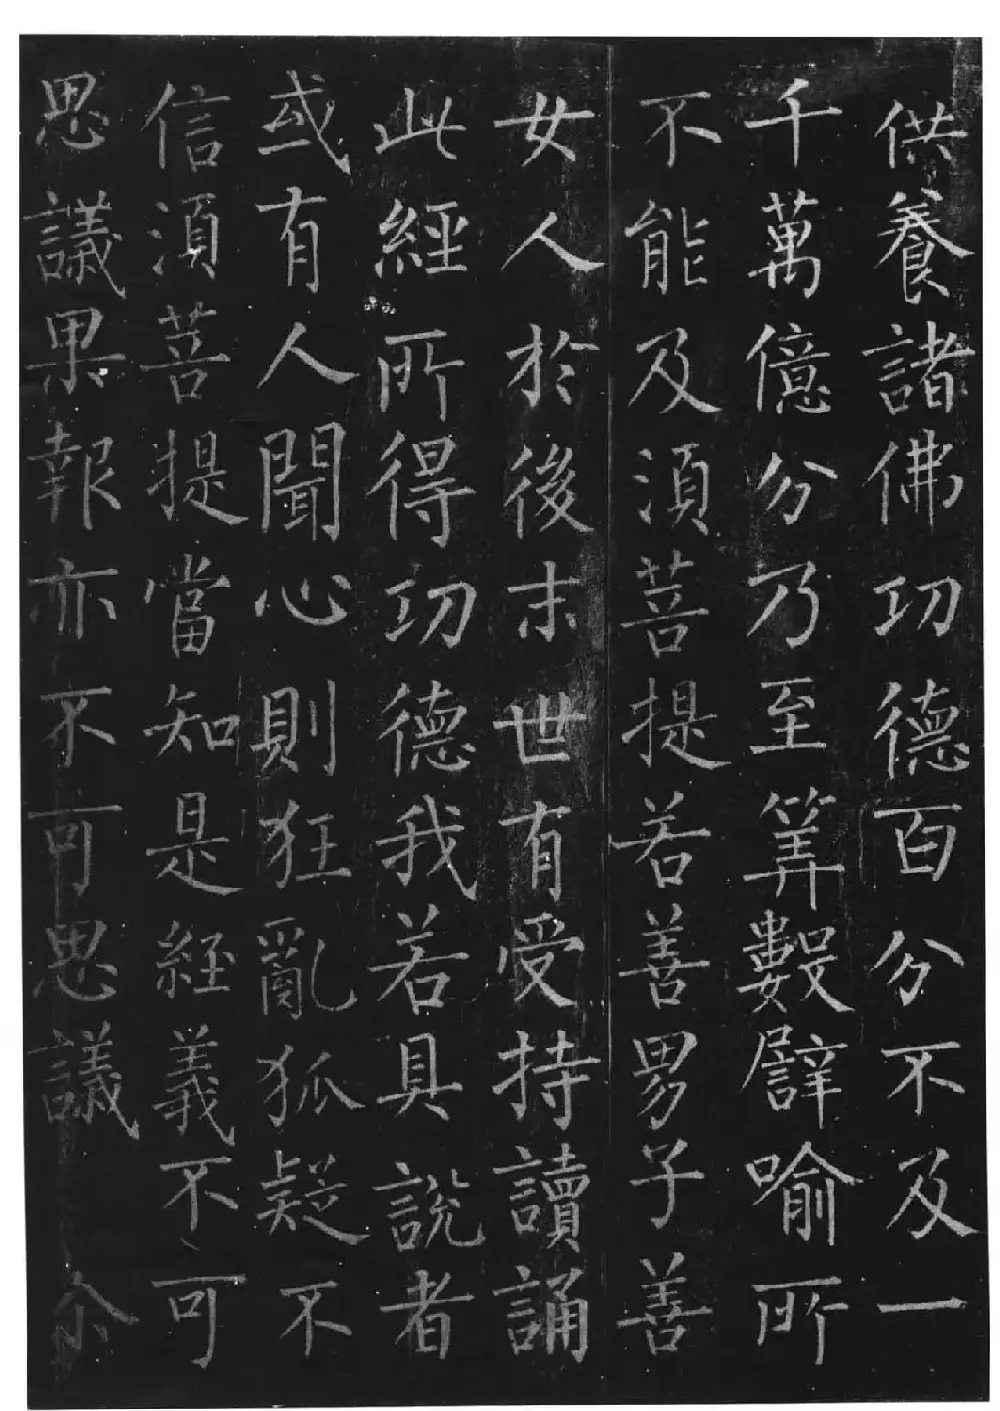 供養諸佛功德百分不及一
千萬億分乃至筭數譬喻所
不能及須菩提若善男子善
女人於後末世有受持讀誦
此經所得功德我若具說者
或有人聞心則狂亂狐疑不
信須菩提當知是經義不可
思議果報亦不可思議 尒